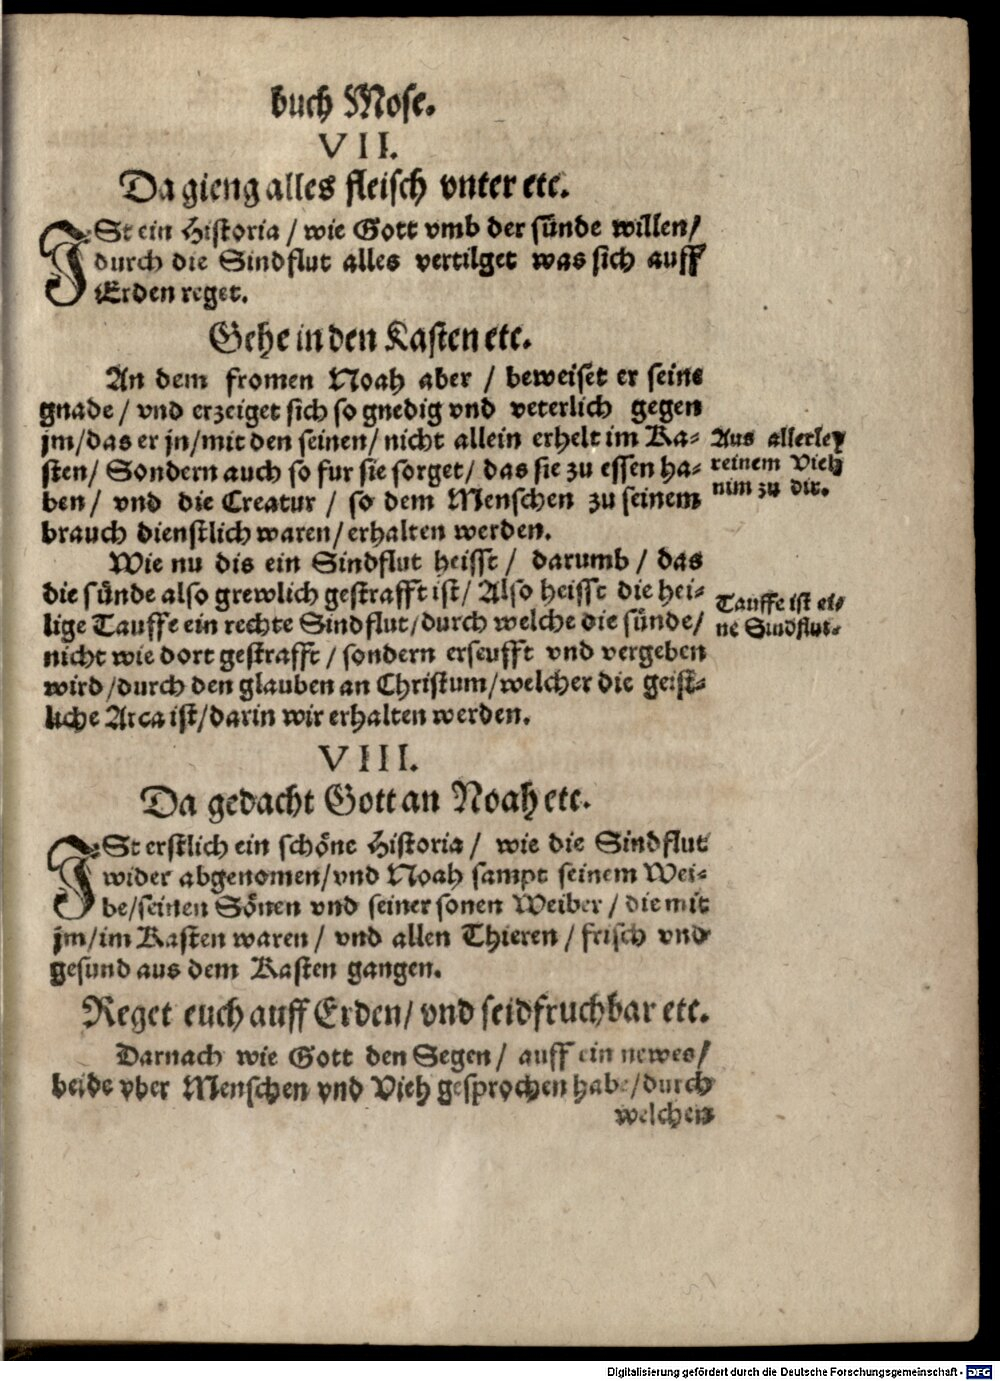 buch Mose.
VII.
Da gieng alles fleisch vnter etc.
ISt ein Historia / wie Gott vmb der sünde willen /
durch die Sindflut alles vertilget was sich auff
Erden reget.
Gehe in den Kasten etc.
An dem fromen Noah aber / beweiset er seine
gnade / vnd erzeiget sich so gnedig vnd veterlich gegen
jm / das er jn / mit den seinen / nicht allein erhelt im Ka-
sten / Sondern auch so fur sie sorget / das sie zu essen ha-
ben / vnd die Creatur / so dem Menschen zu seinem
brauch dienstlich waren / erhalten werden.
Aus allerley
reinem Vieh
nim zu dir.
Wie nu dis ein Sindflut heisst / darumb / das
die sünde also grewlich gestrafft ist / Also heisst die hei-
lige Tauffe ein rechte Sindflut / durch welche die sünde /
nicht wie dort gestrafft / sondern erseufft vnd vergeben
wird / durch den glauben an Christum / welcher die geist-
liche Arca ist / darin wir erhalten werden.
Tauffe ist ei-
ne Sindflut.
VIII.
Da gedacht Gott an Noah etc.
ISt erstlich ein schöne Historia / wie die Sindflut
wider abgenomen / vnd Noah sampt seinem Wei-
be / seinen Sönen vnd seiner sonen Weiber / die mit
jm / im Kasten waren / vnd allen Thieren / frisch vnd
gesund aus dem Kasten gangen.
Reget euch auff Erden / vnd seid fruchbar etc.
Darnach wie Gott den Segen / auff ein newes /
beide vber Menschen vnd Vieh gesprochen habe / durch
welchen
Digitalisierung gefördert durch die Deutsche Forschungsgemeinschaft - DFG